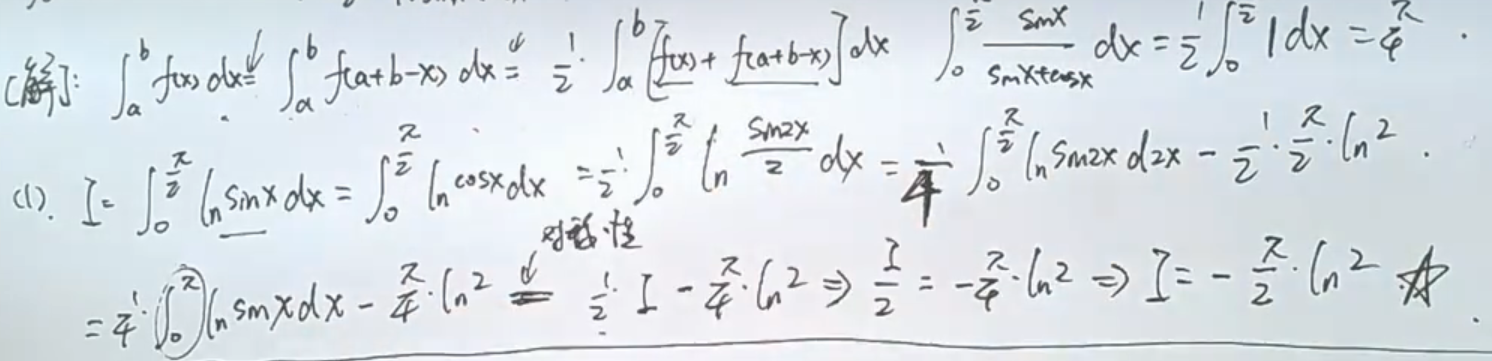 [解]: ∫_a^b f(x) dx = ∫_a^b f(a+b-x) dx = 1/2 · ∫_a^b [f(x) + f(a+b-x)] dx ∫_0^{π/2} sinx/(sinx+cosx) dx = 1/2 ∫_0^{π/2} 1 dx = π/4 .
(1). I = ∫_0^{π/2} ln sinx dx = ∫_0^{π/2} ln cosx dx = 1/2 · ∫_0^{π/2} ln (sin2x/2) dx = 1/4 ∫_0^{π/2} ln sin2x d2x - 1/2 · π/2 · ln2 .
对称性
= 1/4 · ∫_0^π ln sinx dx - π/4 · ln2 = 1/2 · I - π/4 · ln2 ⇒ I/2 = -π/4 · ln2 ⇒ I = - π/2 · ln2 ☆ .